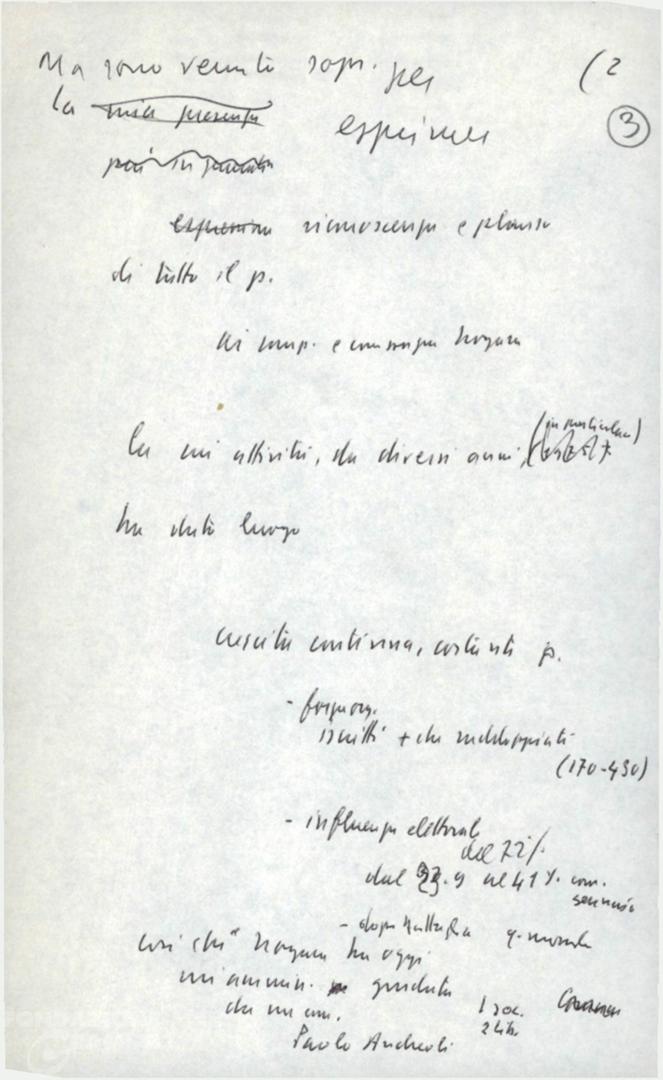 Ma sono venuto sopr. per (2
la mia presenza esprimer 3
più in
espressione riconoscenza e plauso
di tutto il p.
ai comp. e comunque Nogara
la cui attività, da diversi anni, (in particolare)
ha dato luogo
crescita continua, costante p.
- forza org.
iscritti + che raddoppiati
(170-430)
- influenza elettorale
dal 22%
dal 33.9 al 41% com.
senato
- dopo battaglia
così che Nogara ha oggi
un'ammin. guidata
da un com. 1 soc.
2 lib.
Paolo Andreoli